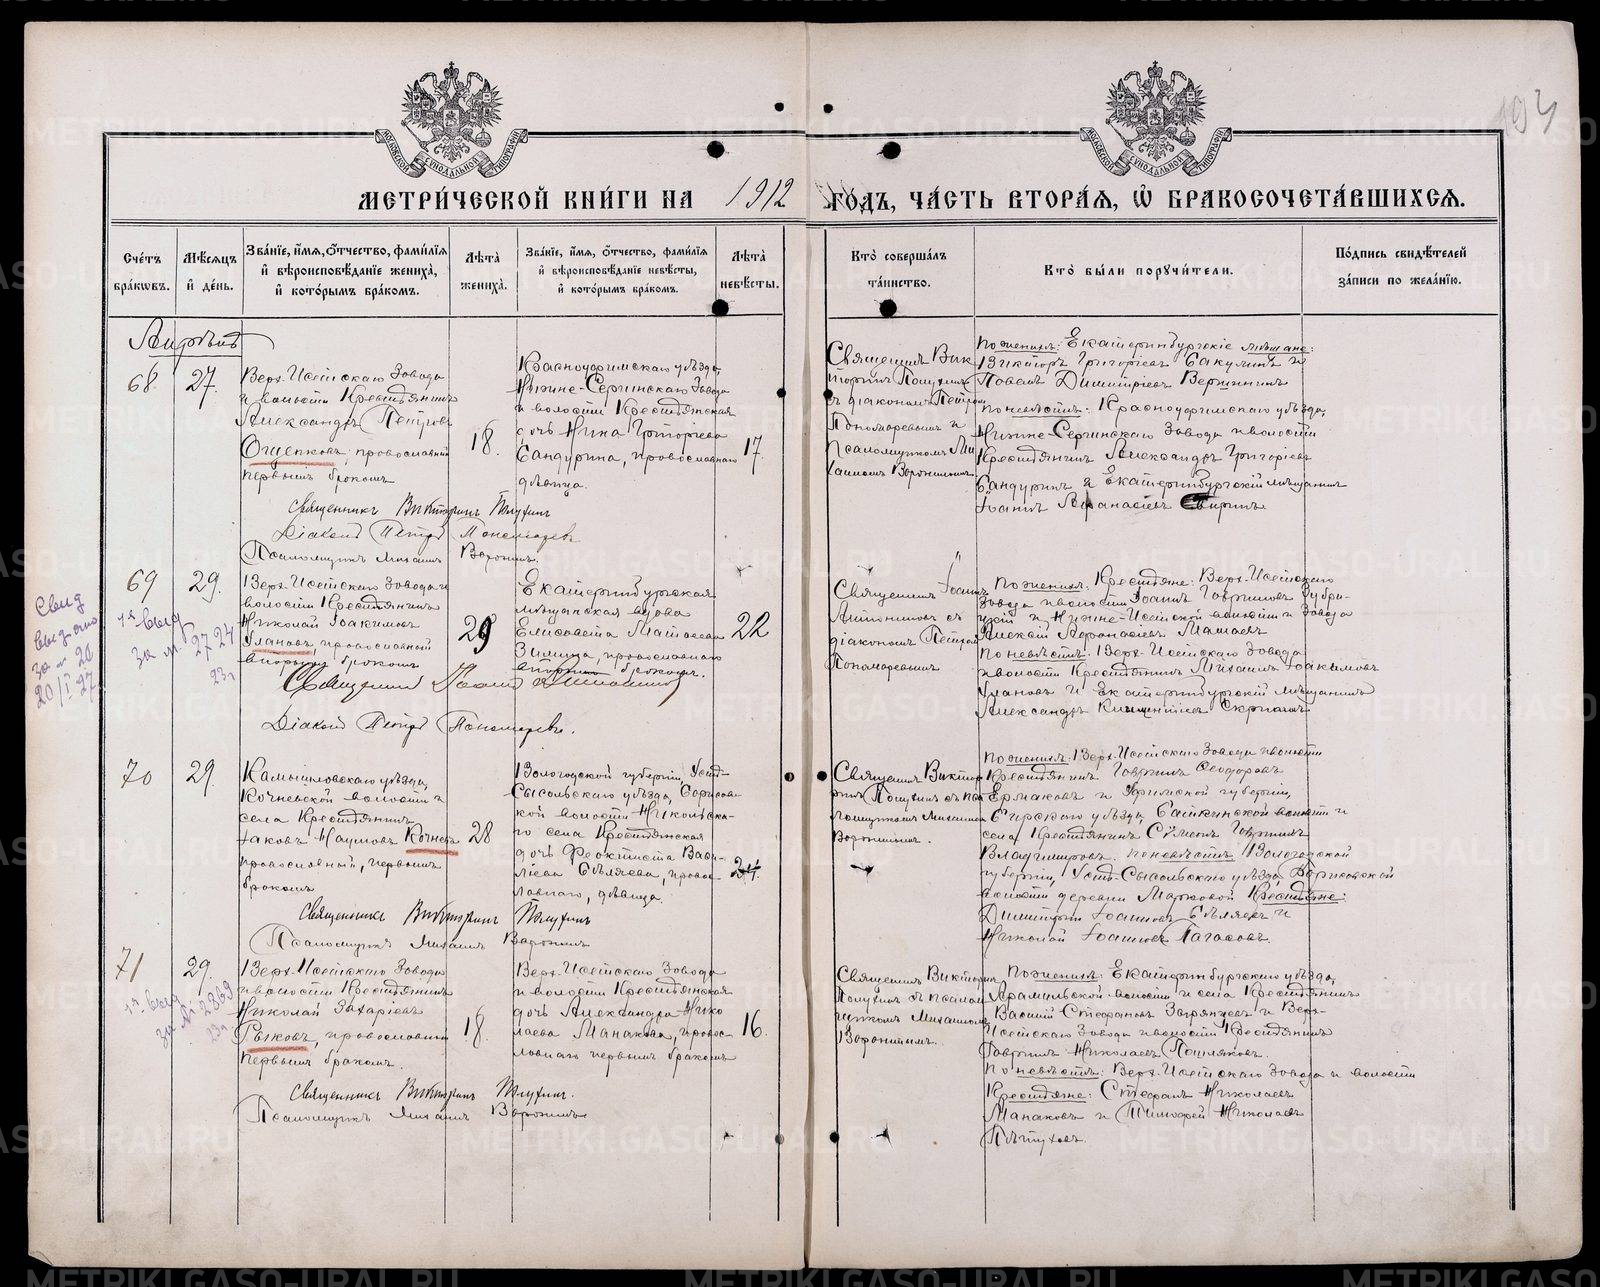 МЕТРИ́ЧЕСКОЙ КНИ́ГИ НА 1912 ГО́ДЪ, ЧА́СТЬ ВТОРА́Я, Ѡ҆ БРАКОСОЧЕТА́ВШИХСЯ.
Сче́тъ бра́кѡвъ.
Мѣ́сяцъ и҆ де́нь.
Зва́нїе, и҆́мя, ѻ҆́тчество, фами́лїя и҆ вѣроисповѣ́данїе жениха̀, и҆ кото́рымъ бра́комъ.
Лѣ́та жениха̀.
Зва́нїе, и҆́мя, ѻ҆́тчество, фами́лїя и҆ вѣроисповѣ́данїе невѣ́сты, и҆ кото́рымъ бра́комъ.
Лѣ́та невѣ́сты.
Кто̀ соверша́лъ та́инство.
Кто̀ бы́ли порꙋчи́тели.
По́дпись свидѣ́телей за́писи по жела́нїю.
Апрѣль
68.
27.
Верх-Исетскаго Завода
и волости Крестьянинъ
Александръ Петровъ
Ощепковъ, православный
первымъ бракомъ
18.
Красноуфимскаго уѣзда,
Нижне-Сергинскаго Завода
и волости Крестьянская
дочь Нина Григоріева
Сандурина, православнаго
дѣвица.
17.
Священникъ Викторинъ
съ діакономъ Петромъ
Пономаревымъ и
Псаломщикомъ Михаиломъ Воронинымъ
По женихѣ: Екатеринбургскіе мѣщане:
Викторъ Григоріевъ Бакулинъ и
Павелъ Димитріевъ Вершининъ
по невѣстѣ: Красноуфимскаго уѣзда,
Нижне-Сергинскаго Завода и волости
Крестьянинъ Александръ Григоріевъ
Сандуринъ и Екатеринбургскій мѣщанинъ
Іоаннъ Афанасіевъ
Священникъ Викторинъ
Діаконъ Петръ Пономаревъ
Псаломщикъ Михаилъ Воронинъ.
69
29.
Верх-Исетскаго Завода и
волости Крестьянинъ
Николай Іоакимовъ
Улановъ, православный
вторымъ бракомъ
29
Екатеринбургская
мѣщанская вдова
Елисавета Матвеева
Зимина, православнаго
вторымъ бракомъ.
22
Священникъ Іоаннъ
съ
діакономъ Петромъ
Пономаревымъ
По женихѣ: Крестьяне: Верх-Исетскаго
Завода и волости Іоаннъ Гавриловъ
и Нижне-Исетской волости и Завода
Алексѣй Афанасіевъ Мамаевъ
По невѣстѣ: Верх-Исетскаго Завода
и волости Крестьянинъ Михаилъ Іоакимовъ
Улановъ и Екатеринбургскій мѣщанинъ
Александръ
Священникъ Іоаннъ
Діаконъ Петръ Пономаревъ.
Свид
выдано
за № 20
20/I 27.
1е выд.
за № 2724
23г
70
29.
Камышловскаго уѣзда,
Кочневской волости и
села Крестьянинъ
Іаковъ Наумовъ Кочневъ
православный, первымъ
бракомъ
28
Вологодской губерніи, Усть-
Сысольскаго уѣзда,
кой волости Никольска-
го села Крестьянская
дочь Феоктиста Васи-
ліева Бѣляева, право-
славнаго, дѣвица.
24.
Священникъ Викто-
ринъ съ пса-
ломщикомъ Михаиломъ
Воронинымъ.
По женихѣ: Верх-Исетскаго Завода и волости
Крестьянинъ Гавріилъ Ѳеодоровъ
Ермаковъ и Уфимской губерніи,
Бирскаго уѣзда, Байкинской волости и
села Крестьянинъ Симеонъ
Владимировъ. по невѣстѣ Вологодской
губерніи, Усть-Сысольскаго уѣзда,
волости деревни Марковой Крестьяне:
Димитрій Іоанновъ Бѣляевъ и
Николай Іоанновъ
Священникъ Викторинъ
Псаломщикъ Михаилъ Воронинъ
71
29.
Верх-Исетскаго Завода
и волости Крестьянинъ
Николай Захаріевъ
Рыковъ, православный
первымъ бракомъ.
18.
Верх-Исетскаго Завода
и волости Крестьянская
дочь Александра Нико
лаева Манакова, право-
славнаго первымъ бракомъ
16.
Священникъ Викторинъ
съ псалом
щикомъ Михаиломъ
Воронинымъ.
По женихѣ: Екатеринбургскаго уѣзда,
Арамильской волости и села Крестьянинъ
Василій Стефановъ Зырянцевъ и Верх-
Исетскаго Завода и волости Крестьянинъ
Гавріилъ Николаевъ
По невѣстѣ: Верх-Исетскаго Завода и волости
Крестьяне: Стефанъ Николаевъ
Манаковъ и Тимофей Николаевъ
Пѣтуховъ.
Священникъ Викторинъ
Псаломщикъ Михаилъ Воронинъ
1е выд.
за № 2869
23г
METRIKI.GASO-URAL.RU